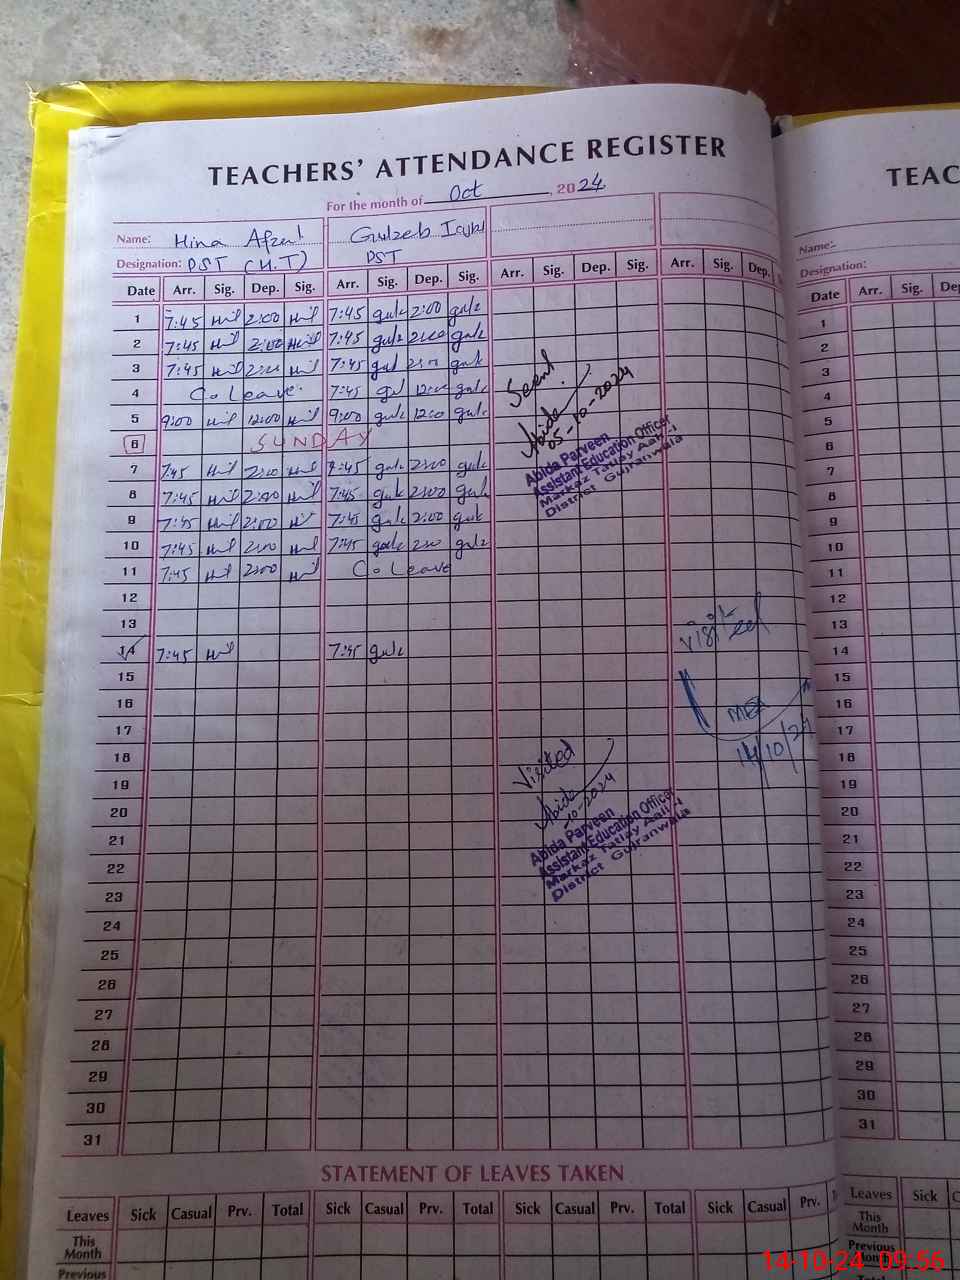 TEACHERS' ATTENDANCE REGISTER
For the month of Oct, 2024
Name: Hina Afzal Gulzeb
Designation: PST (H.T) PST
Date Arr. Sig. Dep. Sig. Arr. Sig. Dep. Sig. Arr. Sig. Dep. Sig. Arr. Sig. Dep.
1 7:45 2:00 7:45 gulz 2:00 gulz
2 7:45 2:00 7:45 gulz 2:00 gulz
3 7:45 2:00 7:45 gul 2:00 gulz
4 C. Leave. 7:45 gul 12:00 gulz
5 9:00 12:00 9:00 gulz 12:00 gulz
6 SUNDAY
7 7:45 2:00 7:45 gulz 2:00 gulz
8 7:45 2:00 7:45 gulz 2:00 gulz
9 7:45 2:00 7:45 gulz 2:00 gulz
10 7:45 2:00 7:45 gulz 2:00 gulz
11 7:45 2:00 C. Leave
12
13
14 7:45 7:45 gulz
15
16
17
18
19
20
21
22
23
24
25
26
27
28
29
30
31
Seen
Abida
05-10-2024
Abida Parveen
Assistant Education Officer
Markaz Tatlay Aali-I
District Gujranwala
Visited
MEA
14/10/24
Visited
Abida
-10-2024
Abida Parveen
Assistant Education Officer
Markaz Tatlay Aali-I
District Gujranwala
STATEMENT OF LEAVES TAKEN
Leaves Sick Casual Prv. Total Sick Casual Prv. Total Sick Casual Prv. Total Sick Casual Prv.
This Month
Previous
TEAC
Name:-
Designation:
Date Arr. Sig. De
1
2
3
4
5
6
7
8
9
10
11
12
13
14
15
16
17
18
19
20
21
22
23
24
25
26
27
28
29
30
31
Leaves Sick C
This Month
Previous Month
14-10-24 09:56